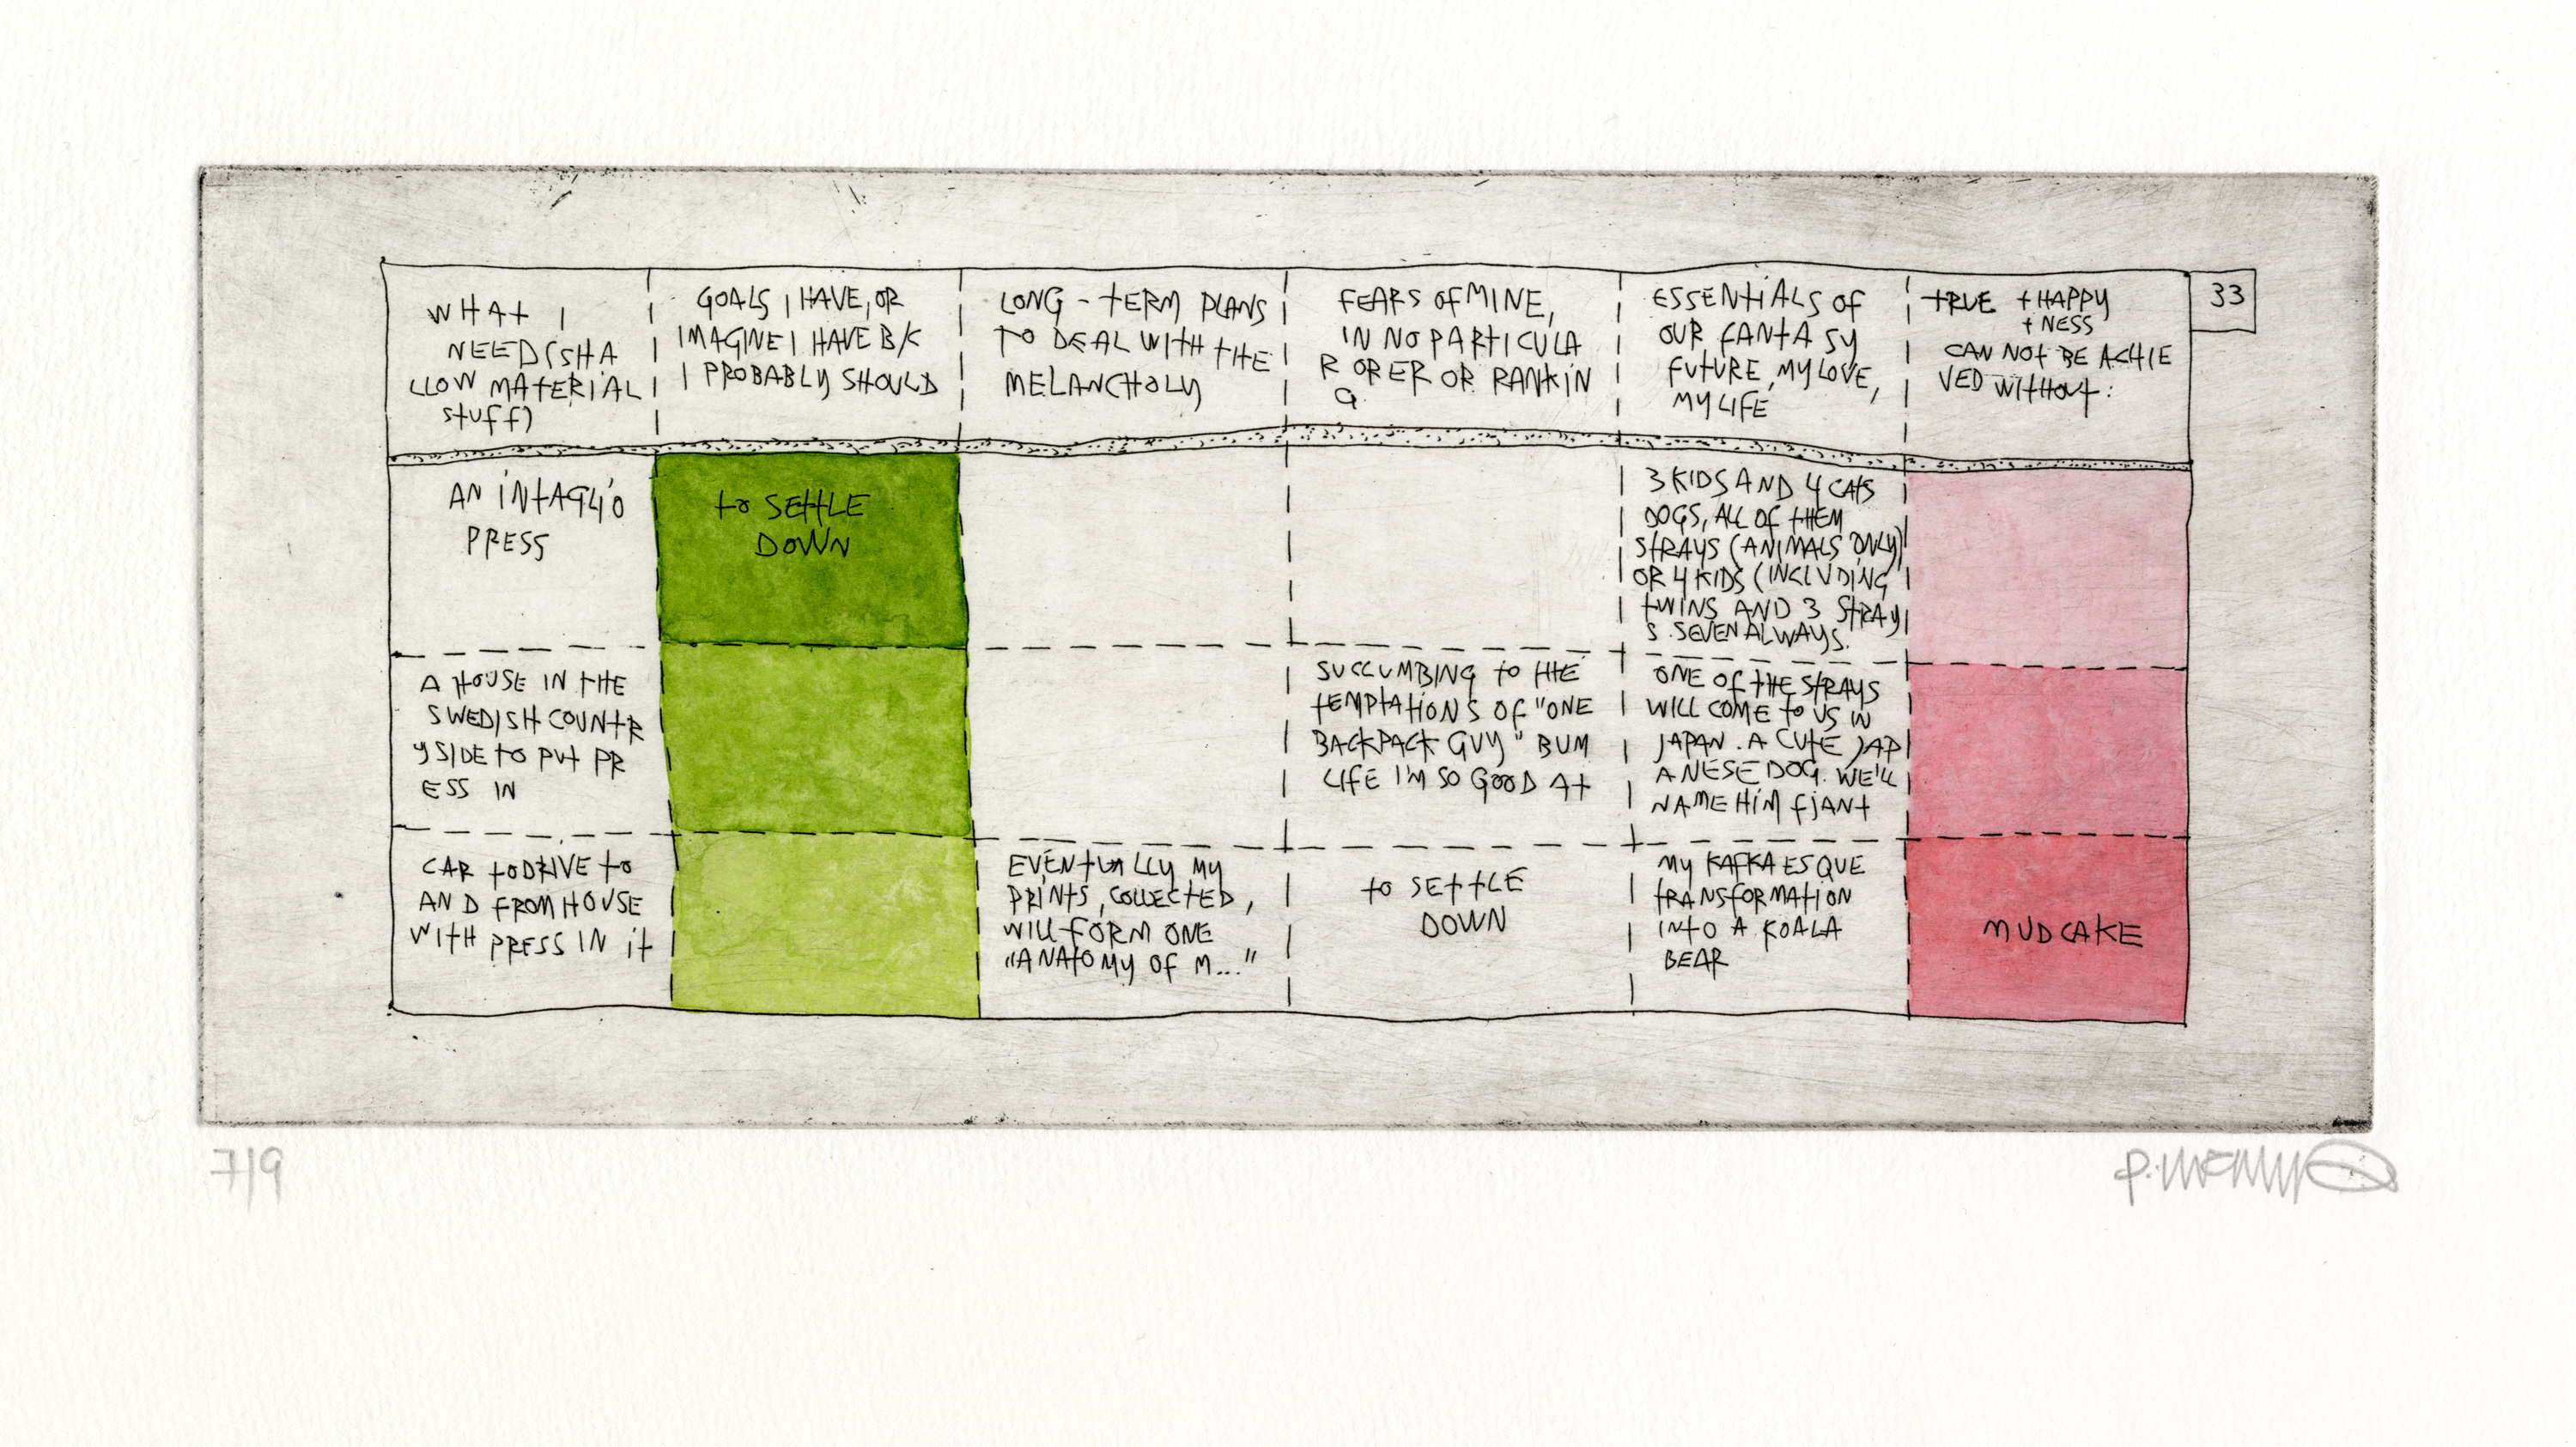 WHAT I
NEED (SHA
LLOW MATERIAL
STUFF)
GOALS I HAVE, OR
IMAGINE I HAVE B/C
I PROBABLY SHOULD
LONG-TERM PLANS
TO DEAL WITH THE
MELANCHOLY
FEARS OF MINE,
IN NO PARTICULA
R ORER OR RANKIN
G
ESSENTIALS OF
OUR FANTASY
FUTURE, MY LOVE,
MY LIFE
TRUE + HAPPY
+ NESS
CAN NOT BE ACHIE
VED WITHOUT:
33
AN INTAGLIO
PRESS
TO SETTLE
DOWN
3 KIDS AND 4 CATS
DOGS, ALL OF THEM
STRAYS (ANIMALS ONLY)
OR 4 KIDS (INCLUDING
TWINS AND 3 STRAY
S. SEVEN ALWAYS.
A HOUSE IN THE
SWEDISH COUNTR
YSIDE TO PUT PR
ESS IN
SUCCUMBING TO THE
TEMPTATIONS OF "ONE
BACKPACK GUY" BUM
LIFE I'M SO GOOD AT
ONE OF THE STRAYS
WILL COME TO US IN
JAPAN. A CUTE JAP
ANESE DOG. WE'LL
NAME HIM FJANT
CAR TO DRIVE TO
AND FROM HOUSE
WITH PRESS IN IT
EVENTUALLY MY
PRINTS, COLLECTED,
WILL FORM ONE
"ANATOMY OF M..."
TO SETTLE
DOWN
MY KAFKAESQUE
TRANSFORMATION
INTO A KOALA
BEAR
MUDCAKE
7/9